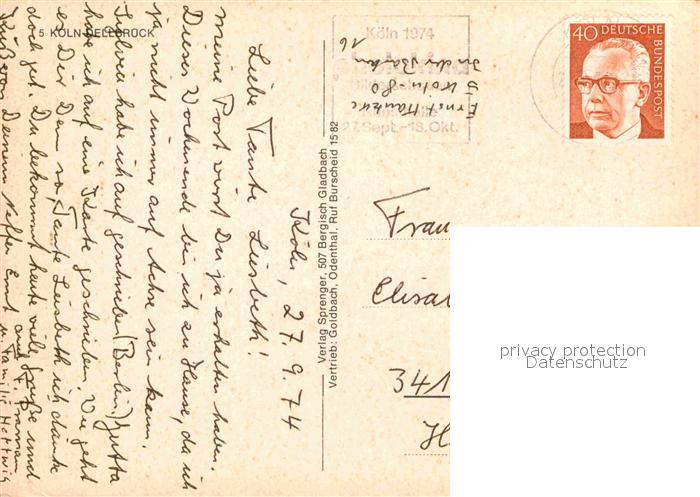 5 KÖLN-DELLBRÜCK
Köln, 27.9.74
Liebe Tante Liesbeth!
meine Post wirst Du ja erhalten haben.
Dieses Wochenende bin ich zu Hause, da ich
ja nicht immer auf Achse sein kann.
habe ich auf geschrieben (Berlin) Jutta
habe ich auf eine Karte geschrieben. Wie geht
es Dir Denn so, Tante Liesbeth ich denke
doch gut. Du bekommst heute viele Grüße und
Grüße von Deinem Neffen Ernst u. Familie
Verlag Sprenger, 507 Bergisch Gladbach
Vertrieb: Goldbach, Odenthal, Ruf Burscheid 1582
Köln 1974
27. Sept.-13. Okt.
Ernst
5 Köln 80
16
40 DEUTSCHE
BUNDESPOST
Frau
Elisa
341
H
privacy protection
Datenschutz